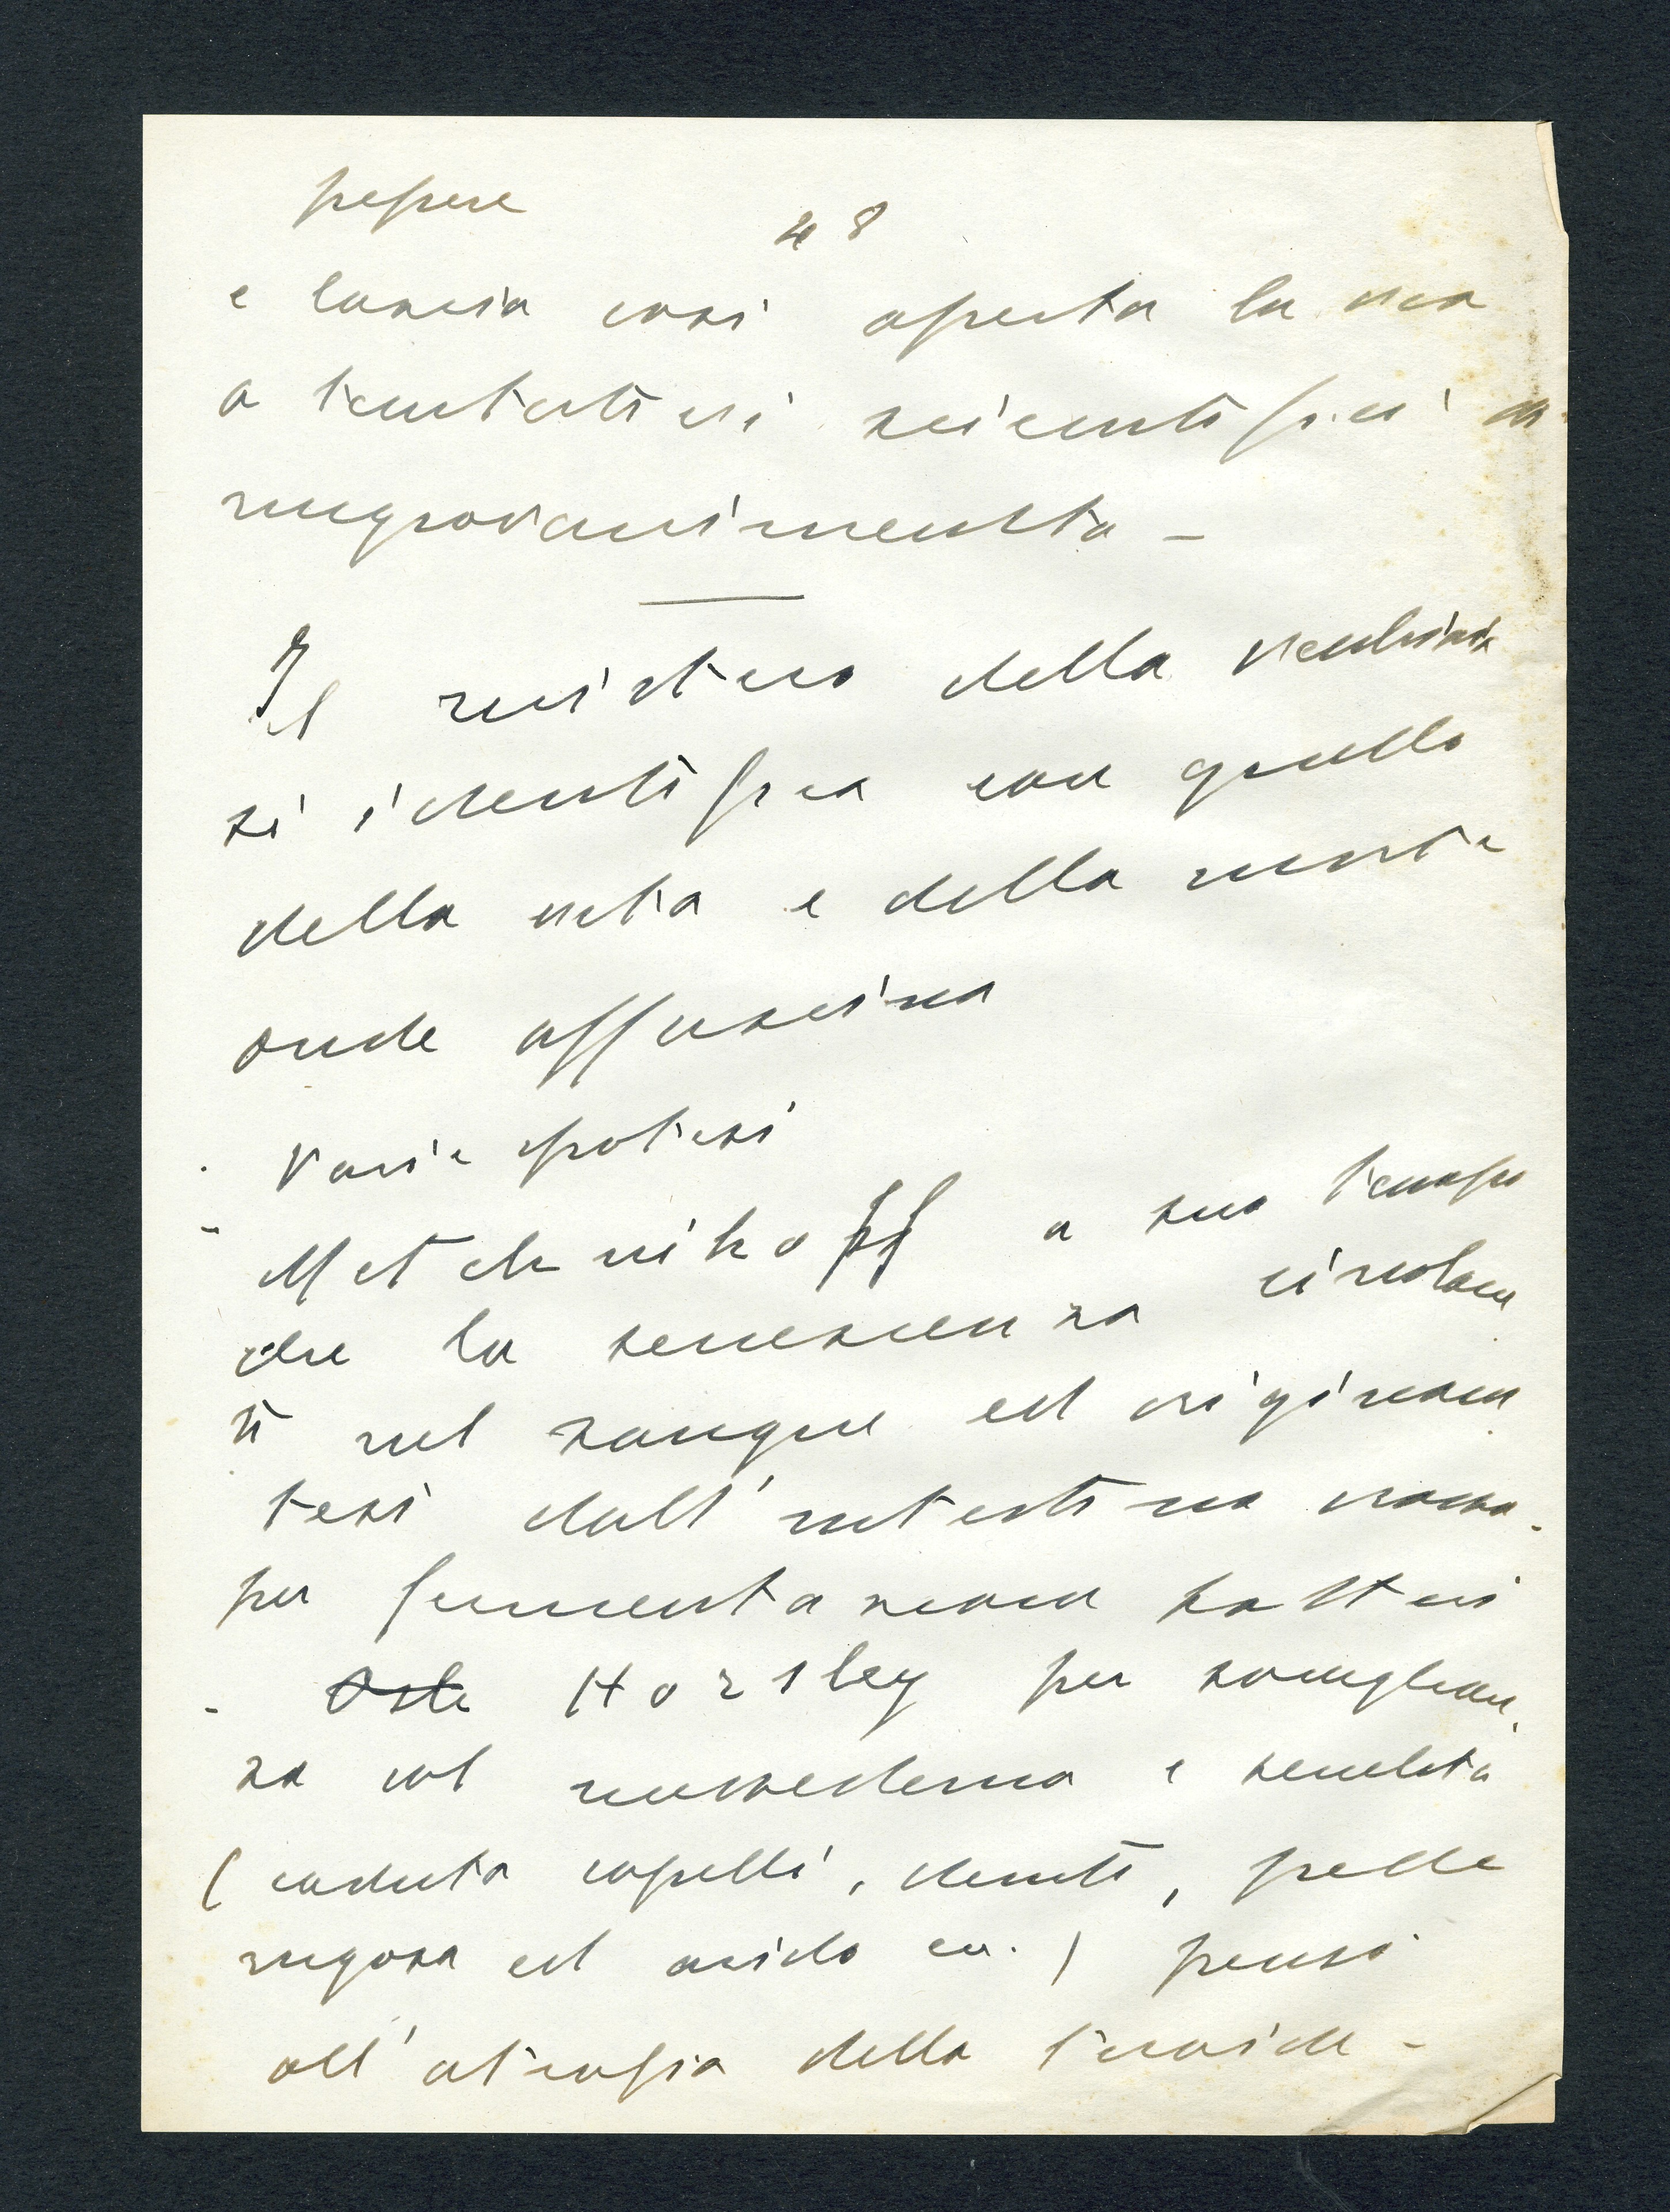 pepere
48
e lascia così aperta la via
a tentativi scientifici di
ringiovanimento -
Il mistero della vecchiaia
si identifica con quello
della vita e della morte
onde affascina
Varie ipotesi
- Metchnikoff a suo tempo
che la senescenza circolan
ti nel sangue ed originan
tesi dall'intestino crasso
per fermentazioni batteri
- Horsley per somiglian
za col mixedema e senilità
(caduta capelli, denti, pelle
rugosa ed arida ecc.) pensò
all'atrofia della tiroide -